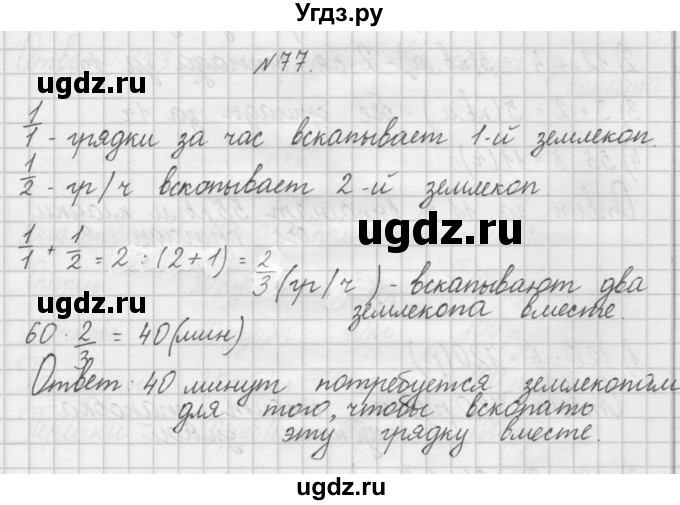 Угдз.ру
№77.
ugdz.ru ugdz.ru
1/1 - грядки за час вскапывает 1-й землекоп.
1/2 - гр/ч вскопывает 2-й землекоп
ugdz.ru
1/1 + 1/2 = 2 : (2+1) = 2/3 (гр/ч) - вскапывают два
землекопа вместе.
ugdz.ru
60 · 2/3 = 40 (мин)
Ответ: 40 минут потребуется землекопам
для того, чтобы вскопать
эту грядку вместе.
ugdz.ru ugdz.ru
ugdz.ru